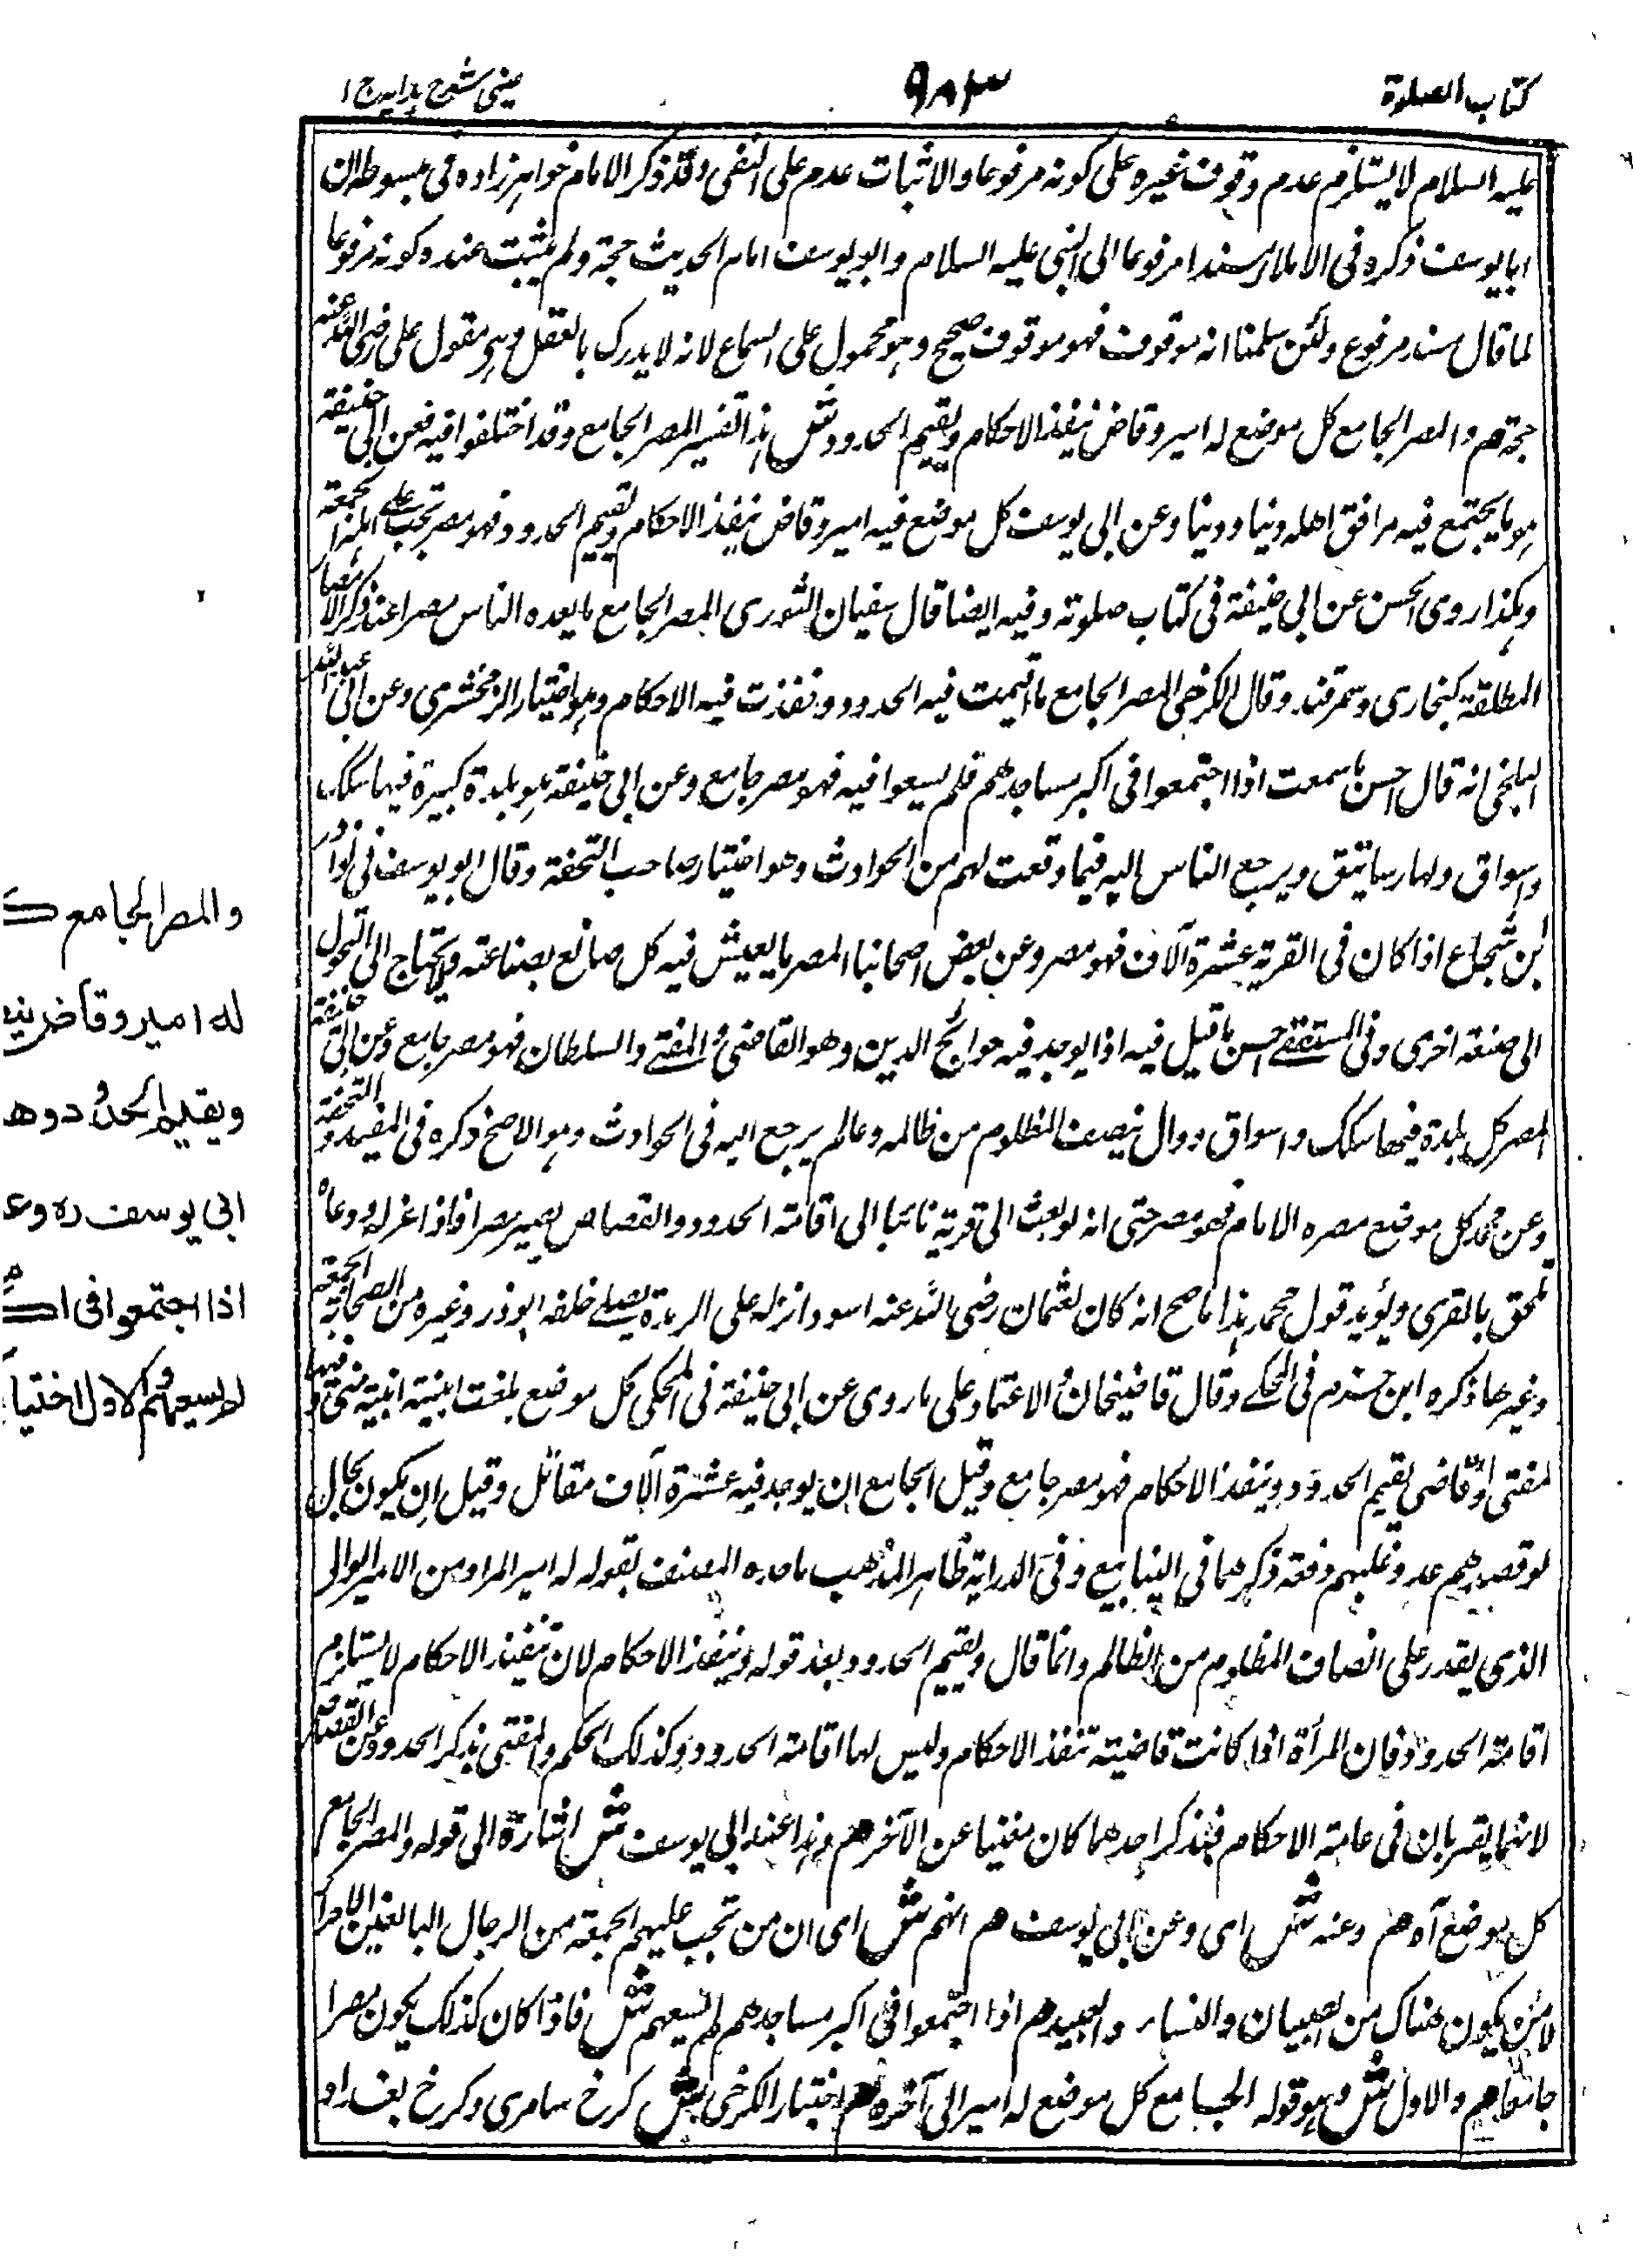 كتاب الصلوة
٩٨٣
عينى شرح هدايه ج ١
عليه السلام لا يستلزم عدم وقوف غيره على كونه مرفوعا والاثبات مقدم على النفى وقد ذكر الامام خواهر زاده فى مبسوطه ان
ابا يوسف ذكره فى الاملاء مسندا مرفوعا الى النبى عليه السلام وابو يوسف امام الحديث حجة ولو لم يثبت عنده كونه مرفوعا
لما قال سند مرفوع ولئن سلمنا انه موقوف فهو موقوف صحيح وهو محمول على السماع لانه لا يدرك بالعقل وهو مقول على رضى الله عنه
حجة هم والمصر الجامع كل موضع له امير وقاض ينفذ الاحكام ويقيم الحدود ش هذا تفسير المصر الجامع وقد اختلفوا فيه فعن ابى حنيفة
هو ما يجتمع فيه مرافق اهله دنيا ودينا وعن ابى يوسف كل موضع فيه امير وقاض ينفذ الاحكام ويقيم الحدود فهو مصر تجب على اهله الجمعة
وهكذا روى الحسن عن ابى حنيفة فى كتاب صلوته وفيه ايضا قال سفيان الثورى المصر الجامع ما يعده الناس مصرا عند ذكر الامصار
المطلقة كبخارى وسمرقند وقال الكرخى المصر الجامع ما اقيمت فيه الحدود ونفذت فيه الاحكام وهو اختيار الزمخشرى وعن ابى عبد الله
البلخى انه قال احسن ما سمعت اذا اجتمعوا فى اكبر مساجدهم فلم يسعوا فيه فهو مصر جامع وعن ابى حنيفة هو بلدة كبيرة فيها سكك
واسواق ولها رساتيق ويرجع الناس اليه فيما وقعت لهم من الحوادث وهو اختيار صاحب التحفة وقال ابو يوسف فى نوادر
ابن شجاع اذا كان فى القرية عشرة آلاف فهو مصر وعن بعض اصحابنا المصر ما يعيش فيه كل صانع بصناعته ولا يحتاج الى التحول
الى صنعة اخرى وفى المستقصى احسن ما قيل فيه اذا يوجد فيه حوائج الدين وهو القاضى والمفتى والسلطان فهو مصر جامع وعن ابى حنيفة
المصر كل بلدة فيها سكك واسواق ووال ينصف المظلوم من ظالمه وعالم يرجع اليه فى الحوادث وهو الاصح ذكره فى المفيد والتحفة
وعن محمد كل موضع مصره الامام فهو مصر حتى انه لو بعث الى قرية نائبا الى اقامة الحدود والقصاص يصير مصرا فاذا عزله ودعاه
تلحق بالقرى ويؤيد قول محمد هذا ما صح انه كان لعثمان رضى الله عنه اسود انزله على الربذة يصلى خلفه ابو ذر وغيره من الصحابة الجمعة
وغيرها ذكره ابن حزم فى المحلى وقال قاضيخان والاعتماد على ما روى عن ابى حنيفة فى المحكى كل موضع بلغت ابنيته ابنية منى وفيها
مفتى او قاضى يقيم الحدود وينفذ الاحكام فهو مصر جامع وقيل الجامع ان يوجد فيه عشرة آلاف مقاتل وقيل ان يكون بحال
لو قصدهم عدو غلبهم دفعة ذكرهما فى الينابيع وفى الدراية ظاهر المذهب ما حده المصنف بقوله له امير المراد من الامير الوالى
الذى يقدر على انصاف المظلوم من الظالم وانما قال ويقيم الحدود بعد قوله وينفذ الاحكام لان تنفيذ الاحكام لا يستلزم
اقامة الحدود فان المرأة اذا كانت قاضية تنفذ الاحكام وليس لها اقامة الحدود وكذلك الحكم والمفتى بذكر الحدود عن القصاص
لانهما يقتربان فى عامة الاحكام فبذكر احدهما كان مغنيا عن الآخر هم وهذا عند ابى يوسف ش اشارة الى قوله والمصر الجامع
كل موضع آه هم وعنه ش اى وعن ابى يوسف هم انهم ش اى ان من تجب عليهم الجمعة من الرجال البالغين الاحرار
لا من يكون هناك من الصبيان والنساء والعبيد هم اذا اجتمعوا فى اكبر مساجدهم لم يسعهم ش فاذا كان كذلك يكون مصرا
جامعا هم والاول ش وهو قوله الجامع كل موضع له امير الى آخره هم اختيار الكرخى ش كرخ سامرى وكرخ بغداد
والمصر الجامع ك
له امير وقاض ينف
ويقيم الحدود وه
ابى يوسف ره وع
اذا اجتمعوا فى اك
لم يسعهم والاول اختيا